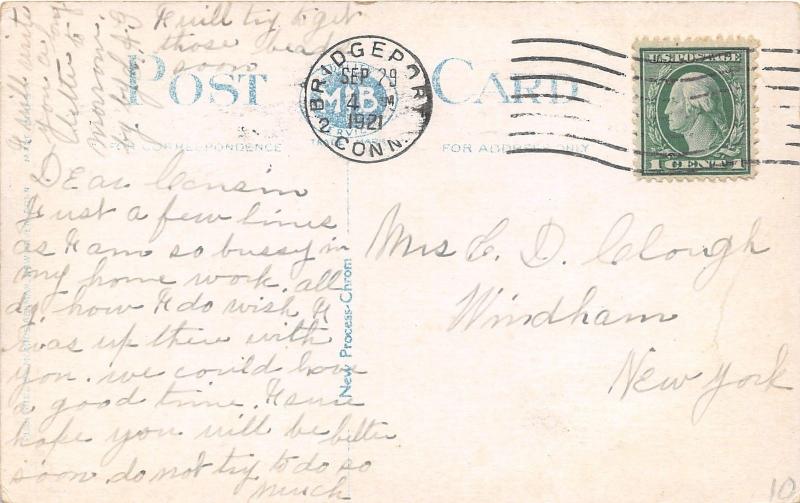 POST CARD
FOR CORRESPONDENCE
FOR ADDRESS ONLY
BRIDGEPORT
SEP 29
4 M
1921
2 CONN.
U.S. POSTAGE
1 CENT 1
Dear Cousin
Just a few lines
as I am so bussy in
my home work. all
day how I do wish I
was up there with
you. we could have
a good time. I sure
hope you will be better
soon do not try to do so
much
I will try to get
those bead
soon
I will write
you a
letter to
morrow.
by by
Mrs C. D. Clough
Windham
New York
New Process-Chrom
10